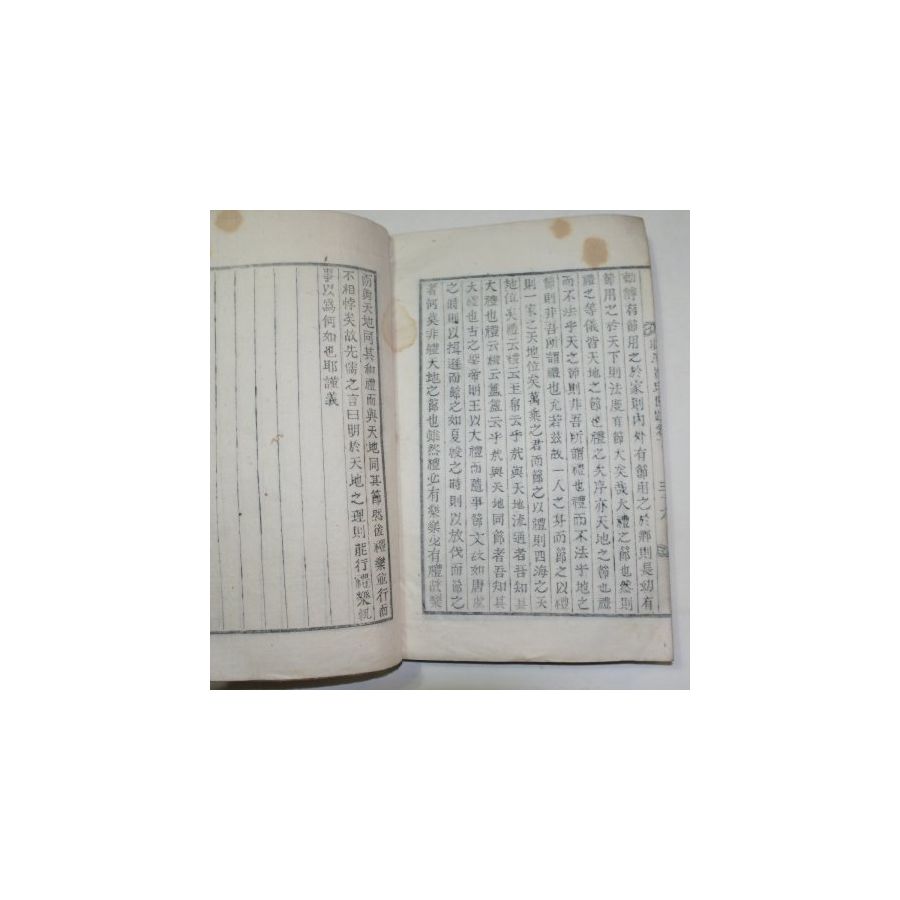 有節用之於家則內外有節用之於鄕則長幼有
節用之於天下則法度有節大矣哉大禮之節也然則
禮之等儀皆天地之節也禮之次序亦天地之節也禮
而不法乎天之節則非吾所謂禮也禮而不法乎地之
節則非吾所謂禮也允若玆故一人之身而節之以禮
則一家之天地位矣萬乘之君而節之以禮則四海之天
地位矣禮云禮云玉帛云乎哉與天地流通者吾知其
大禮也禮云禮云簠簋云乎哉與天地同節者吾知其
大禮也古之聖帝明王以大禮而隨事節文故如唐虞
之時則以揖遜而節之如夏殷之時則以放伐而節之
者何矣非禮天地之節也雖然禮必有樂樂必有禮故樂
而與天地同其和禮而與天地同其節然後禮樂並行而
不相悖矣故先儒之言曰明於天地之理則能行禮樂
事以爲何如也耶謹義